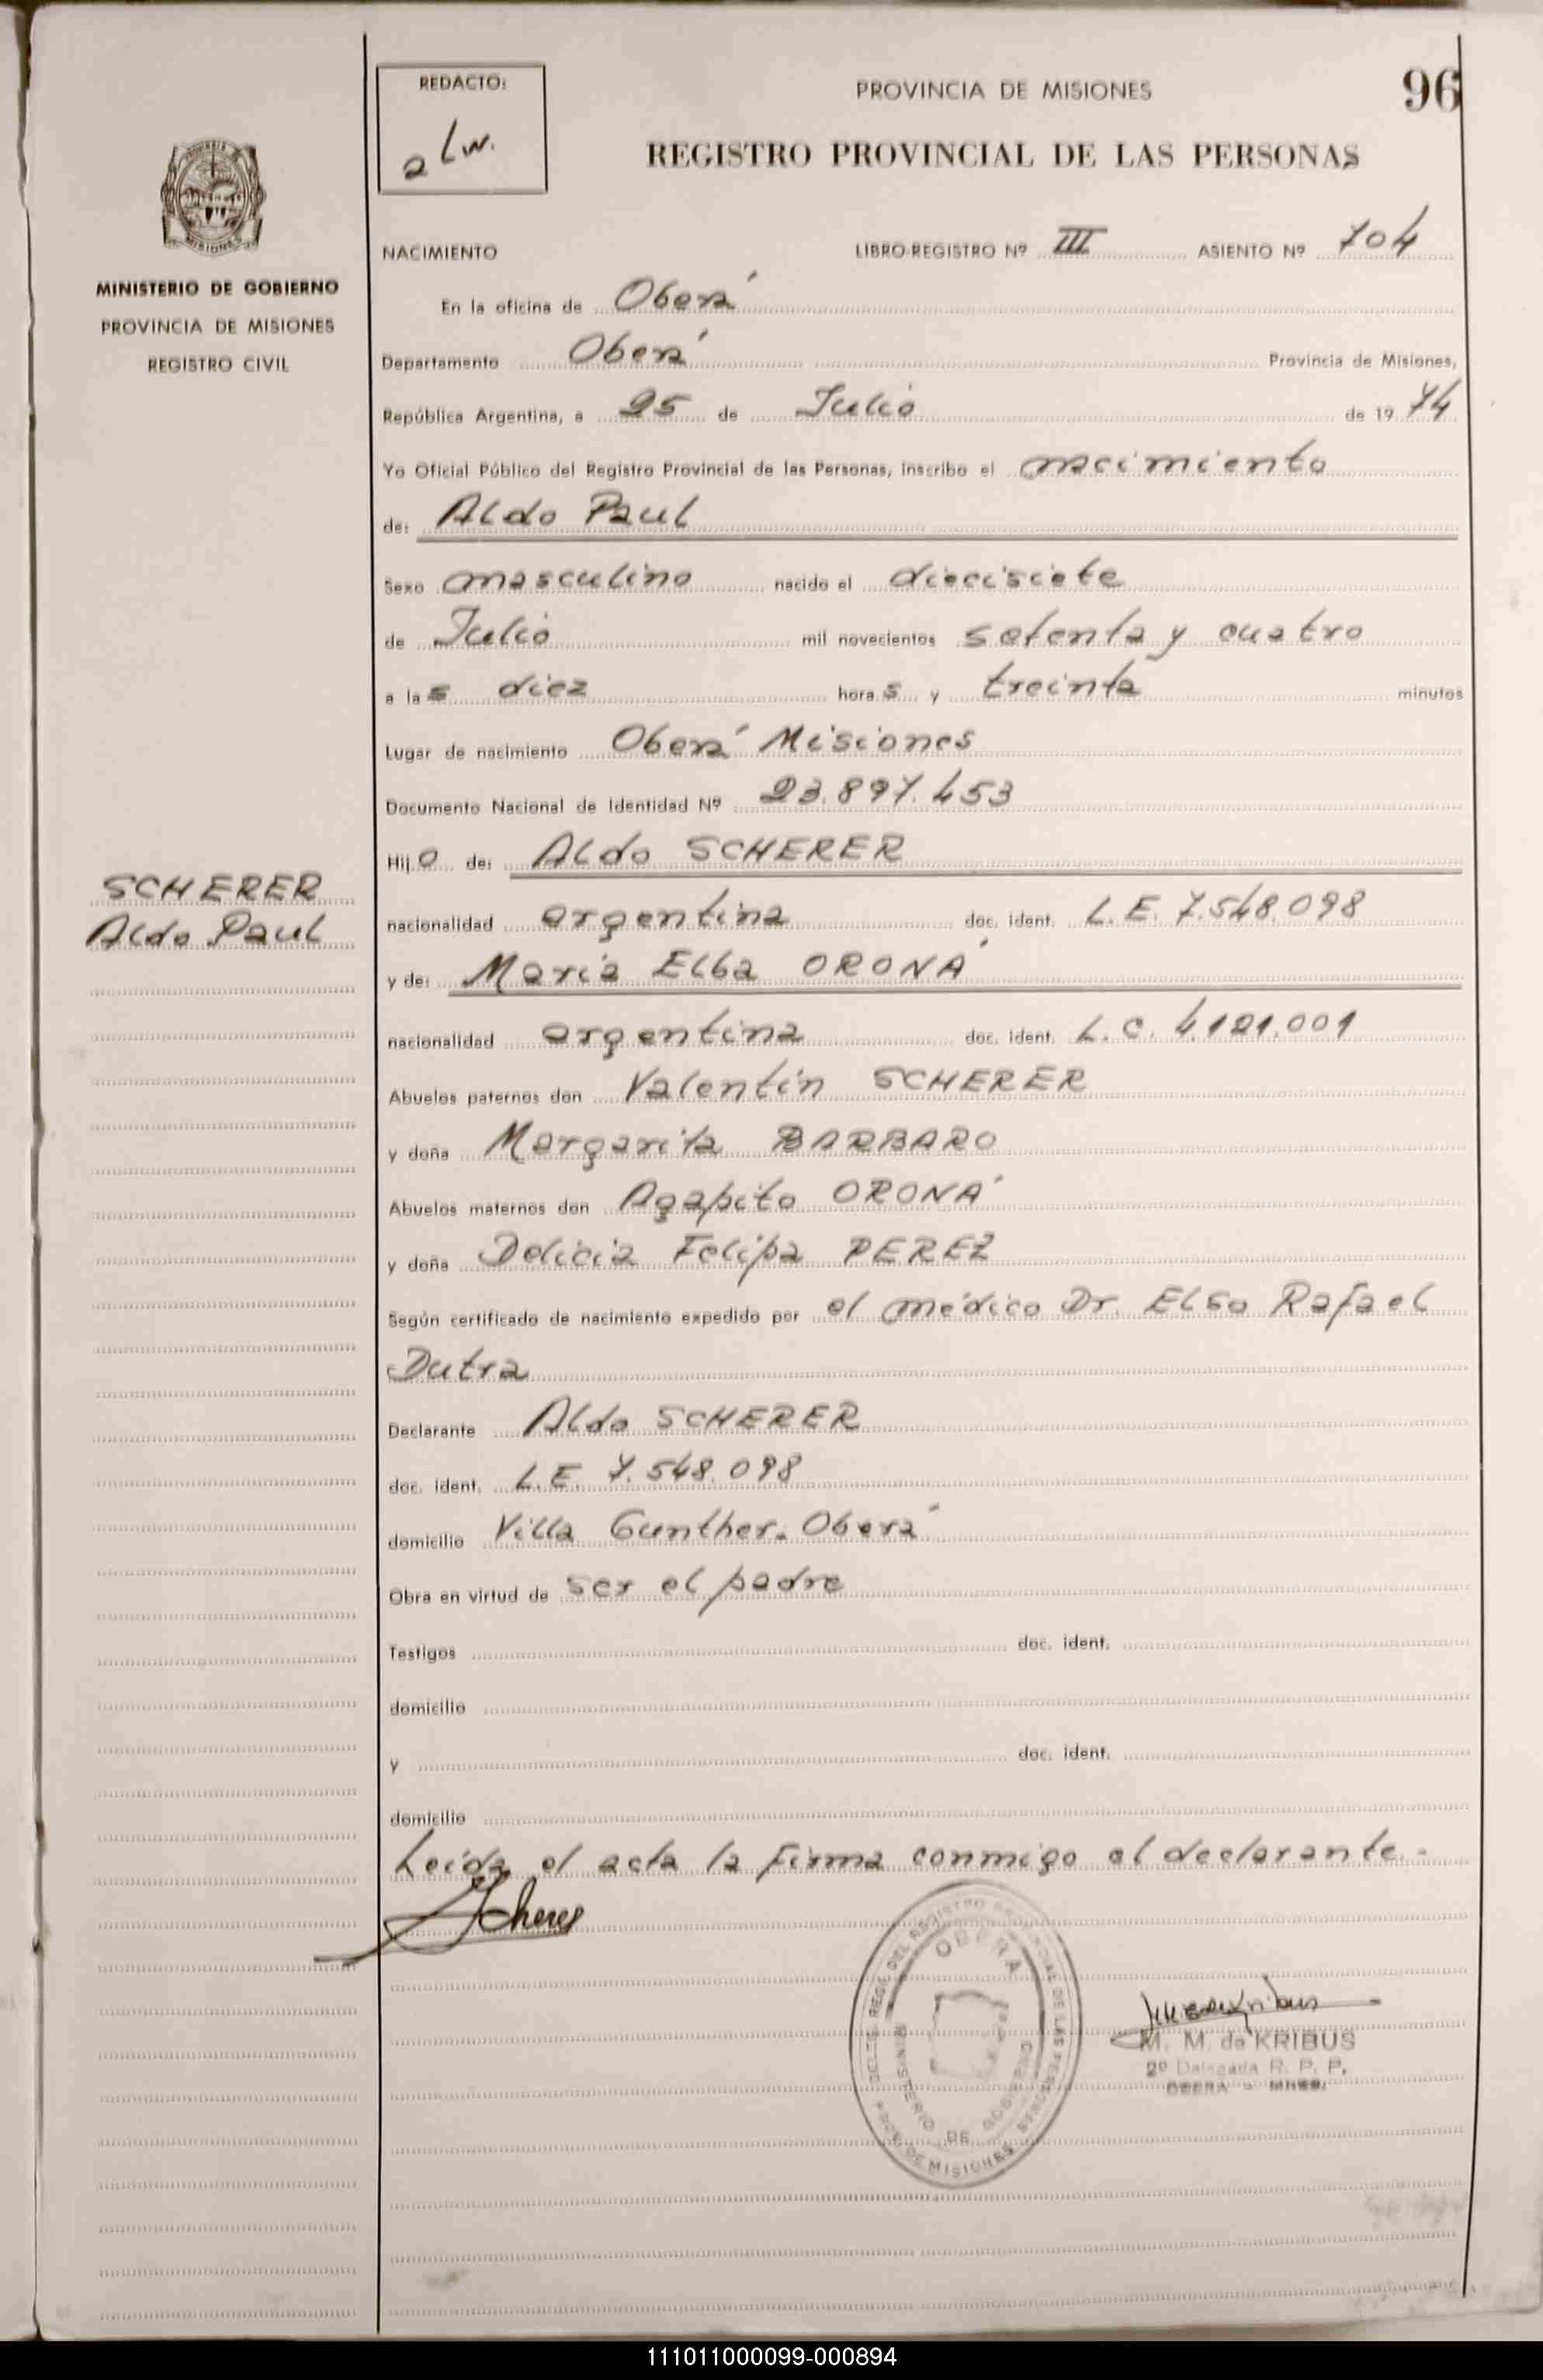 REDACTO:
a Lw.
PROVINCIA DE MISIONES
96
REGISTRO PROVINCIAL DE LAS PERSONAS
MISIONES
MINISTERIO DE GOBIERNO
PROVINCIA DE MISIONES
REGISTRO CIVIL
NACIMIENTO LIBRO-REGISTRO Nº III ASIENTO Nº 704
En la oficina de Oberá
Departamento Oberá Provincia de Misiones,
República Argentina, a 25 de Julio de 1974
Yo Oficial Público del Registro Provincial de las Personas, inscribo el nacimiento
de: Aldo Paul
Sexo masculino nacido el diecisiete
de Julio mil novecientos setenta y cuatro
a las diez horas y treinta minutos
Lugar de nacimiento Oberá Misiones
Documento Nacional de Identidad Nº 23.897.453
Hijo de: Aldo SCHERER
SCHERER
Aldo Paul
nacionalidad argentina doc. ident. L.E. 7.548.098
y de: Maria Elba ORONÁ
nacionalidad argentina doc. ident. L.C. 4.121.001
Abuelos paternos don Valentín SCHERER
y doña Margarita BARBARO
Abuelos maternos don Agapito ORONÁ
y doña Delicia Felipa PEREZ
Según certificado de nacimiento expedido por el médico Dr. Elso Rafael
Dutra
Declarante Aldo SCHERER
doc. ident. L.E. 7.548.098
domicilio Villa Gunther. Oberá
Obra en virtud de ser el padre
Testigos doc. ident.
domicilio
y doc. ident.
domicilio
Leída el acta la firma conmigo el declarante.-
Scherer
OBERA
MINISTERIO DE GOBIERNO
PROV. DE MISIONES
M. M. de KRIBUS
2º Delegada R. P. P.
OBERA - MNES.
111011000099-000894